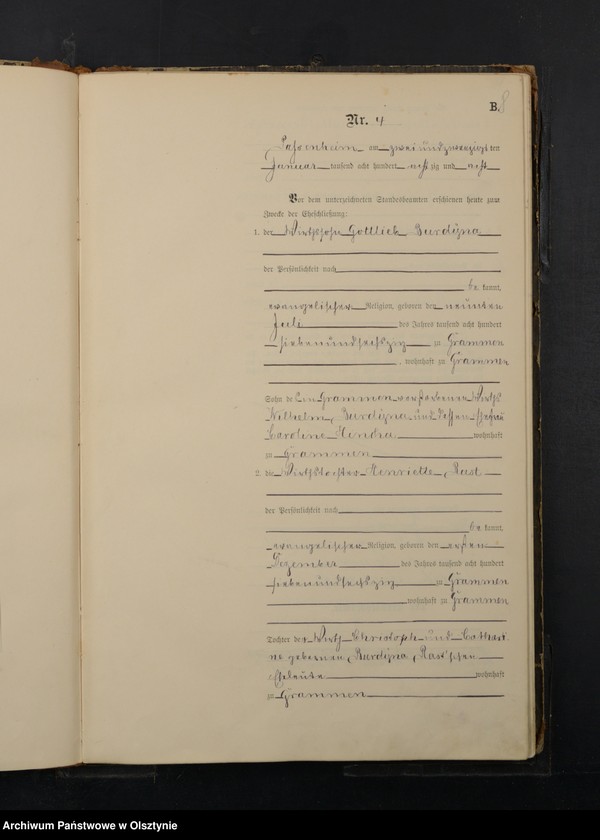 B. 8
Nr. 4
Passenheim am zwei und zwanzigsten
Januar tausend acht hundert achtzig und acht
Vor dem unterzeichneten Standesbeamten erschienen heute zum
Zwecke der Eheschließung:
1. der Wirthssohn Gottlieb Burdyna
der Persönlichkeit nach
be kannt,
evangelischer Religion, geboren den neunten
Juli des Jahres tausend acht hundert
sieben und sechszig zu Grammen
, wohnhaft zu Grammen
Sohn des in Grammen verstorbenen Wirths
Wilhelm Burdyna und dessen
Caroline wohnhaft
zu Grammen
2. die Wirthstochter Henriette Rast
der Persönlichkeit nach
be kannt,
evangelischer Religion, geboren den ersten
Dezember des Jahres tausend acht hundert
sieben und sechszig zu Grammen
wohnhaft zu Grammen
Tochter der Wirth Christoph und Cathari
ne geborenen Burdyna, Rast'schen
Eheleute wohnhaft
zu Grammen
Archiwum Państwowe w Olsztynie